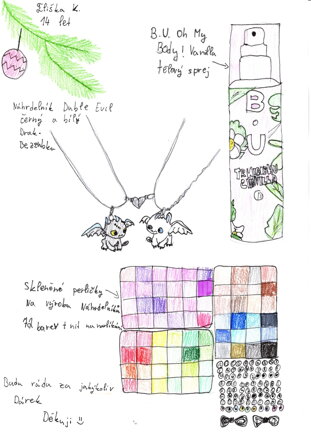 Eliška K.
14 let
B.U. Oh My
Body! Vanilla
tělový sprej
B.U.
Náhrdelník Duble Evel
černý a bílý
Drak.
Skleněné perličky
Na výrobu Náhrdelníků
72 barev + nit na
Budu ráda za jakýkoliv
Dárek
Děkuji